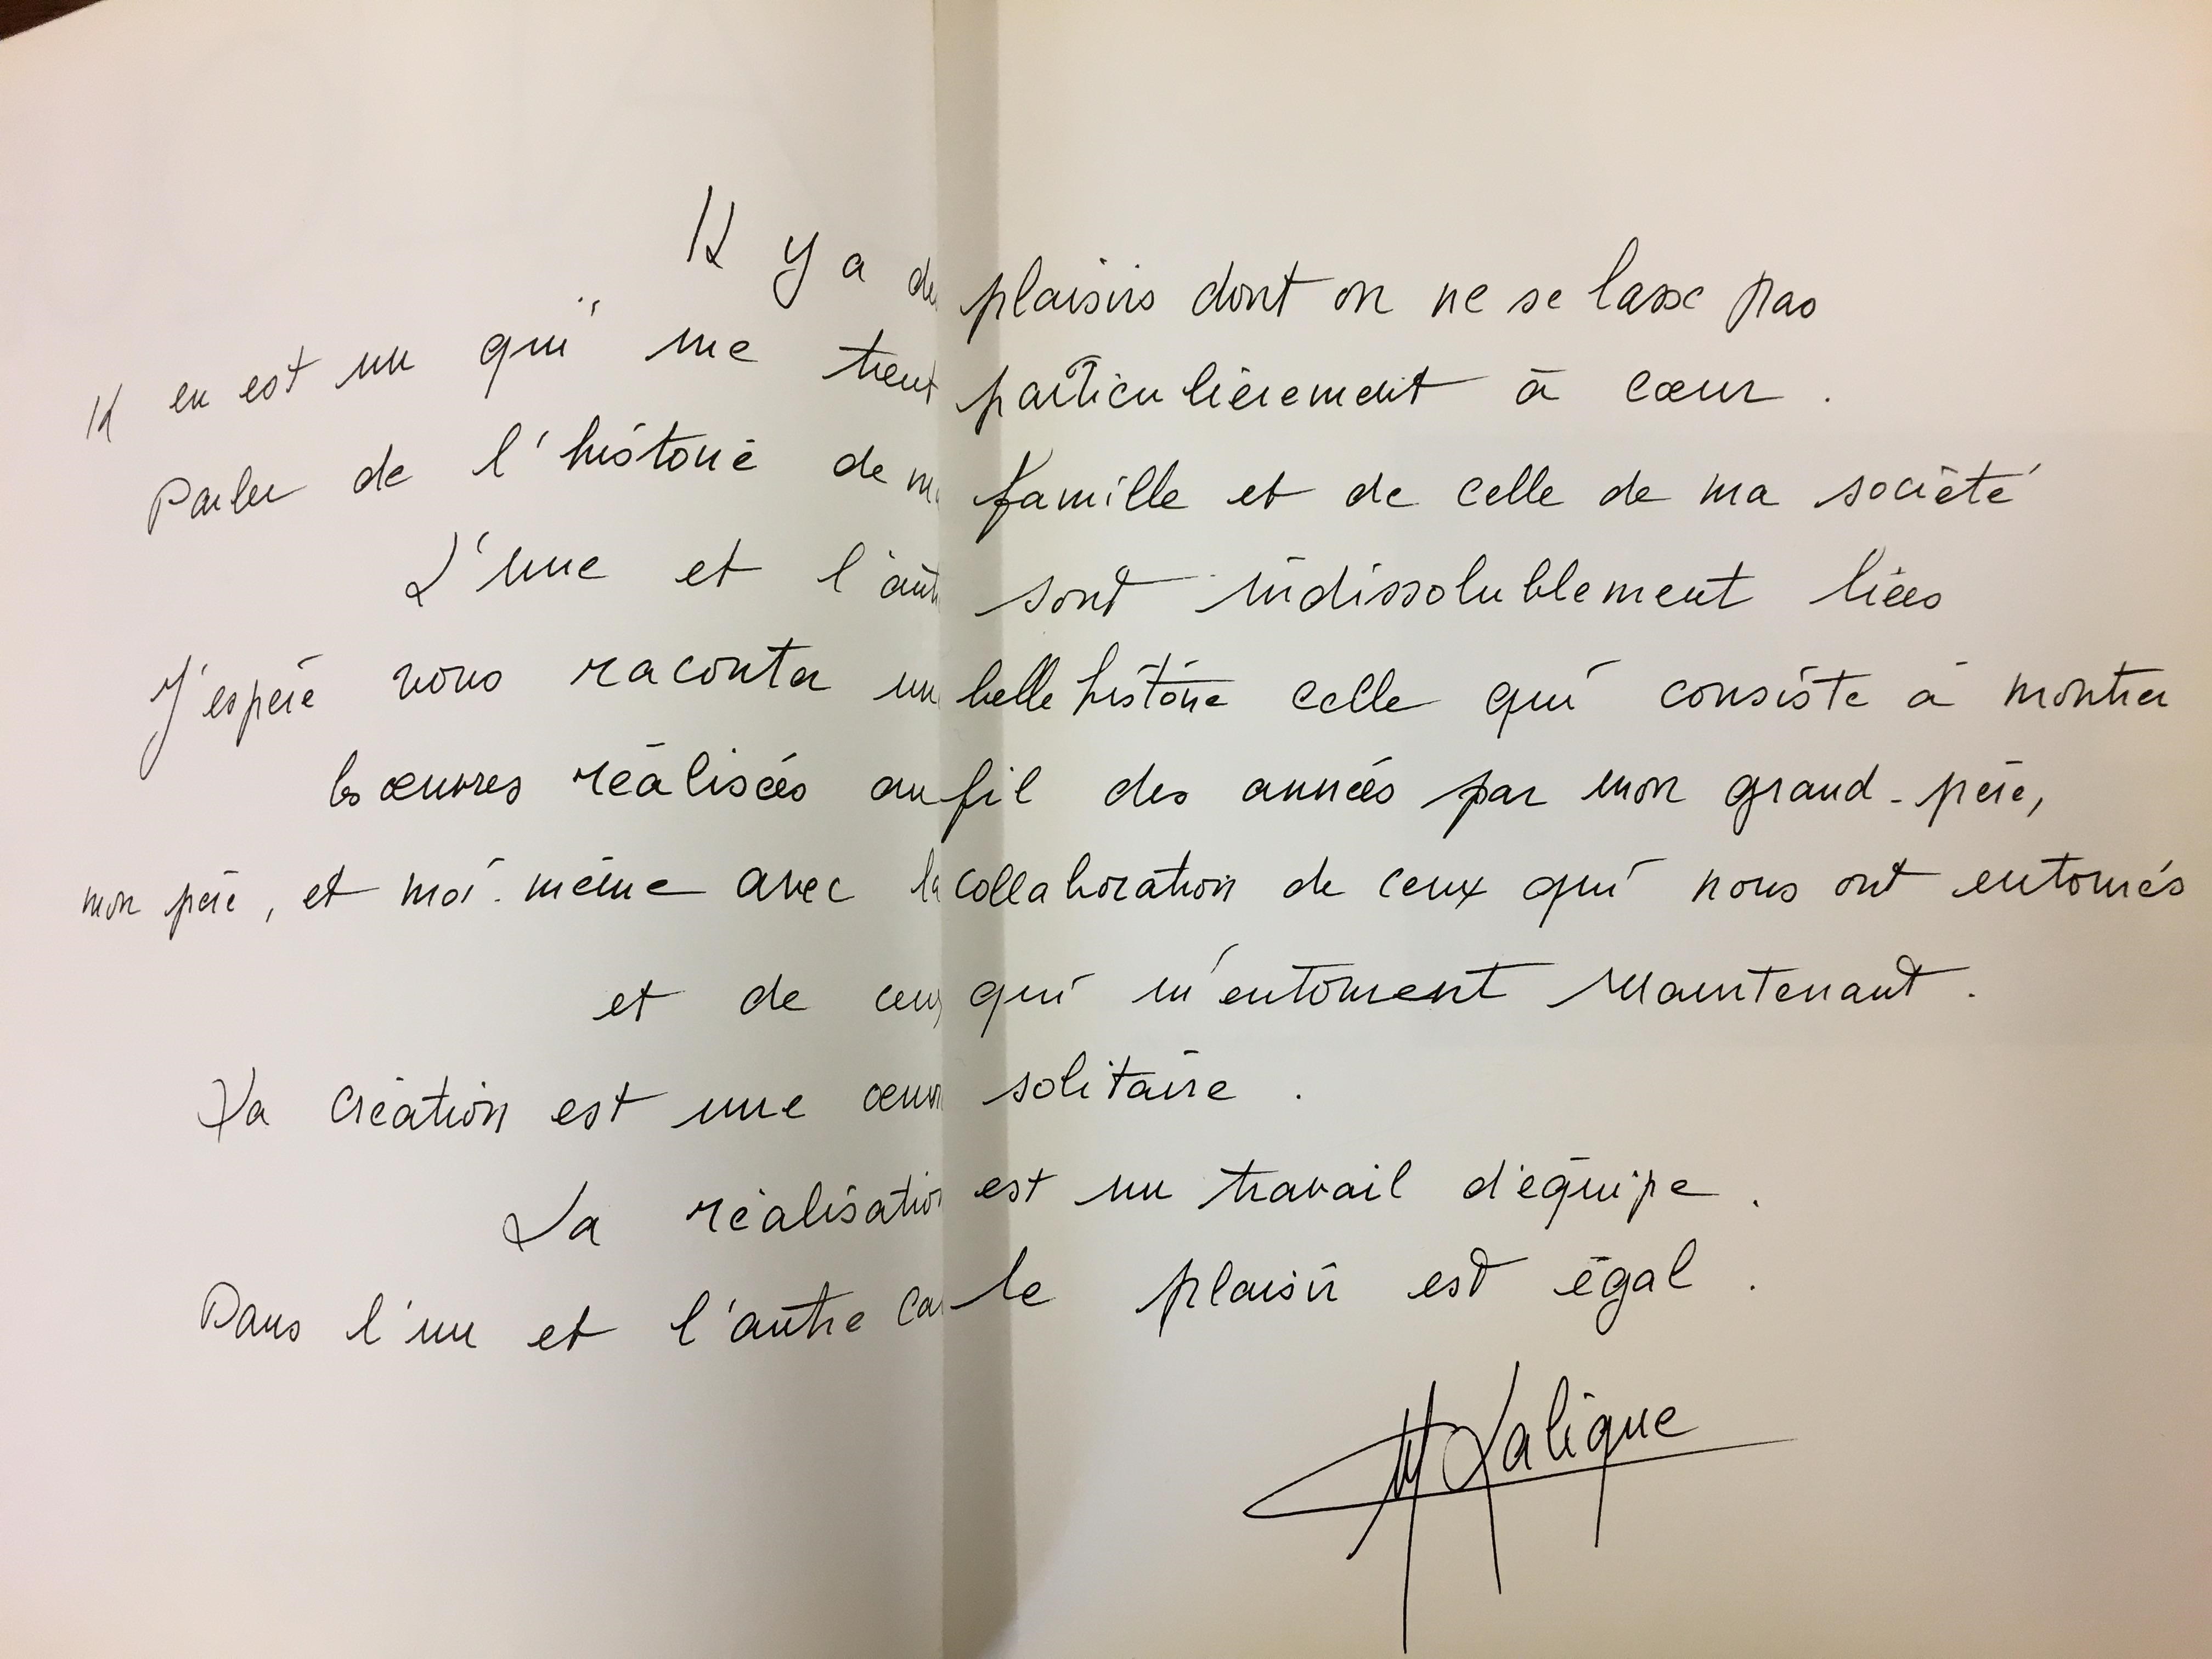 Il y a des plaisirs dont on ne se lasse pas
Il en est un qui me tient particulièrement à cœur.
Parler de l'histoire de ma famille et de celle de ma société
L'une et l'autre sont indissolublement liées
J'espère vous raconter une belle histoire celle qui consiste à montrer
les œuvres réalisées au fil des années par mon grand-père,
mon père, et moi-même avec la collaboration de ceux qui nous ont entourés
et de ceux qui m'entourent maintenant.
La création est une œuvre solitaire.
La réalisation est un travail d'équipe.
Dans l'un et l'autre cas le plaisir est égal.
M Lalique